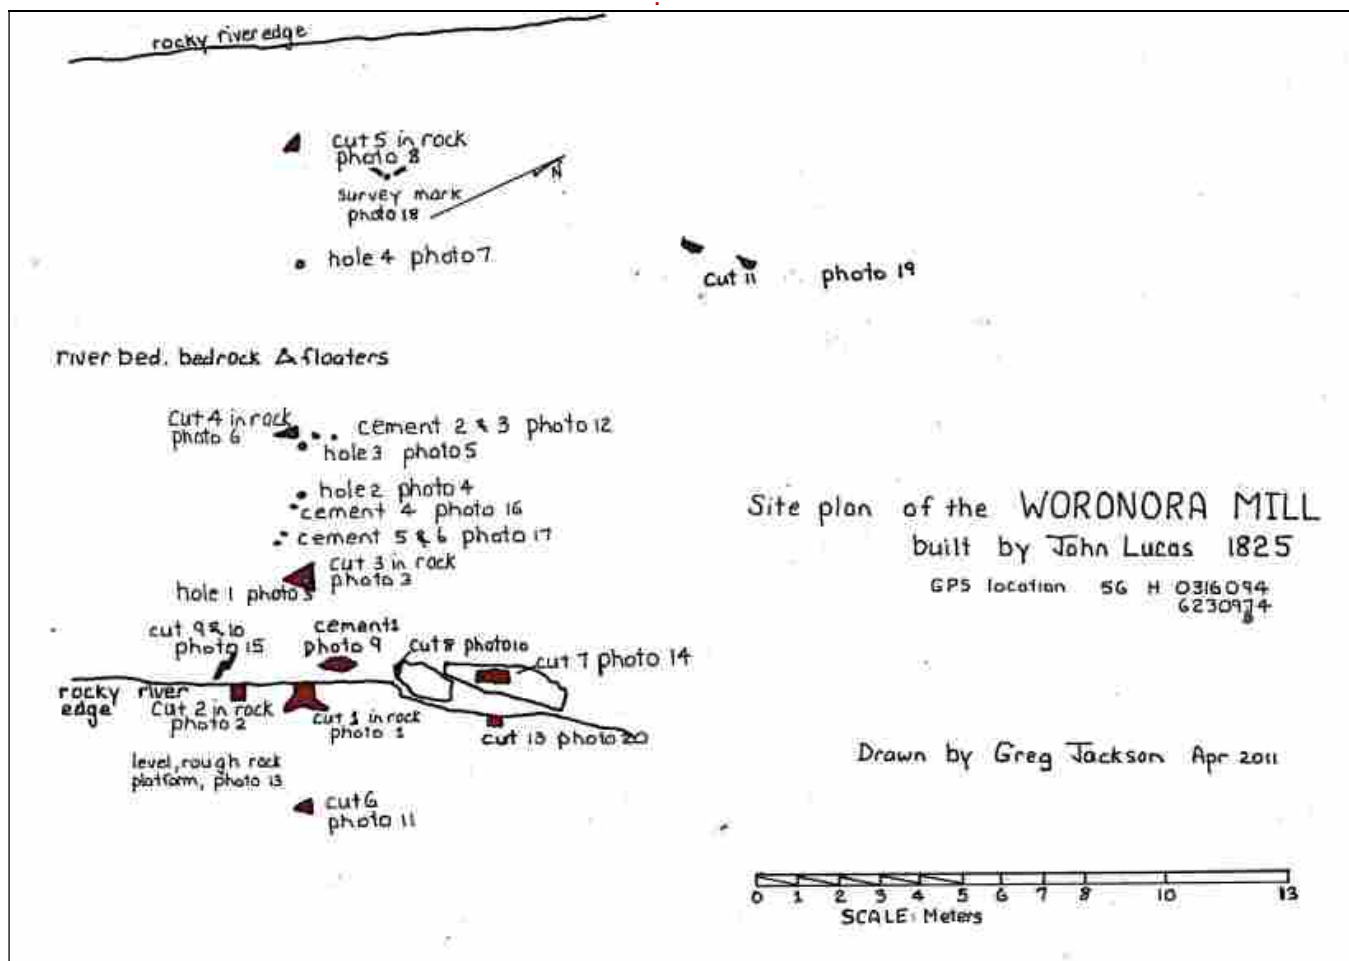 rocky river edge
cut 5 in rock
photo 8
survey mark
photo 18
N
hole 4 photo 7
cut 11 photo 19
river bed. bedrock & floaters
Cut 4 in rock
photo 6
cement 2 & 3 photo 12
hole 3 photo 5
hole 2 photo 4
cement 4 photo 16
cement 5 & 6 photo 17
cut 3 in rock
photo 3
hole 1 photo 3
cut 9 & 10
photo 15
cement 1
photo 9
cut 8 photo 10
cut 7 photo 14
rocky river
edge
Cut 2 in rock
photo 2
cut 1 in rock
photo 1
cut 13 photo 20
level, rough rock
platform, photo 13
cut 6
photo 11
Site plan of the WORONORA MILL
built by John Lucas 1825
GPS location 56 H 0316094
6230974
Drawn by Greg Jackson Apr 2011
0 1 2 3 4 5 6 7 8 10 13
SCALE: Meters